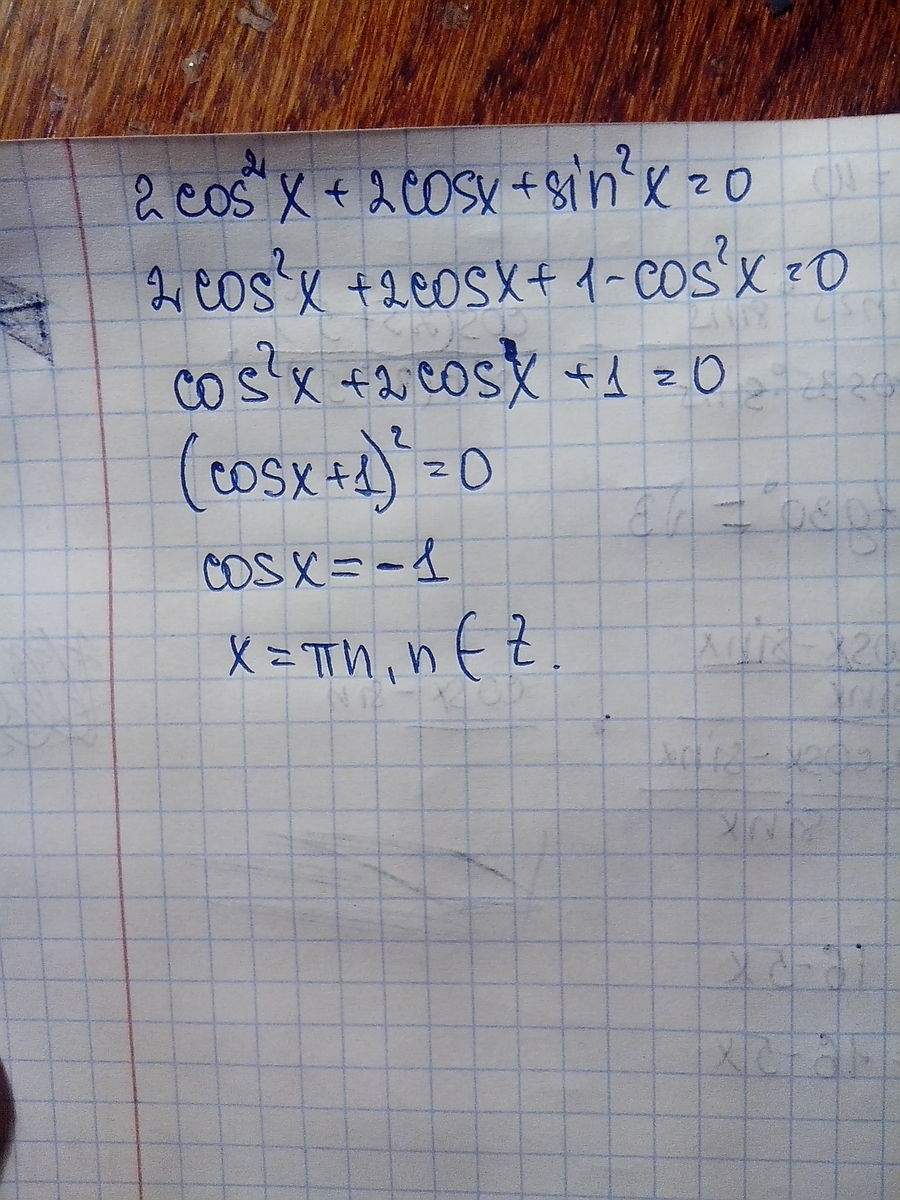 2cos²x + 2cosx + sin²x = 0
2cos²x + 2cosx + 1 - cos²x = 0
cos²x + 2cosx + 1 = 0
(cosx + 1)² = 0
cosx = -1
x = πn, n ∈ Z.